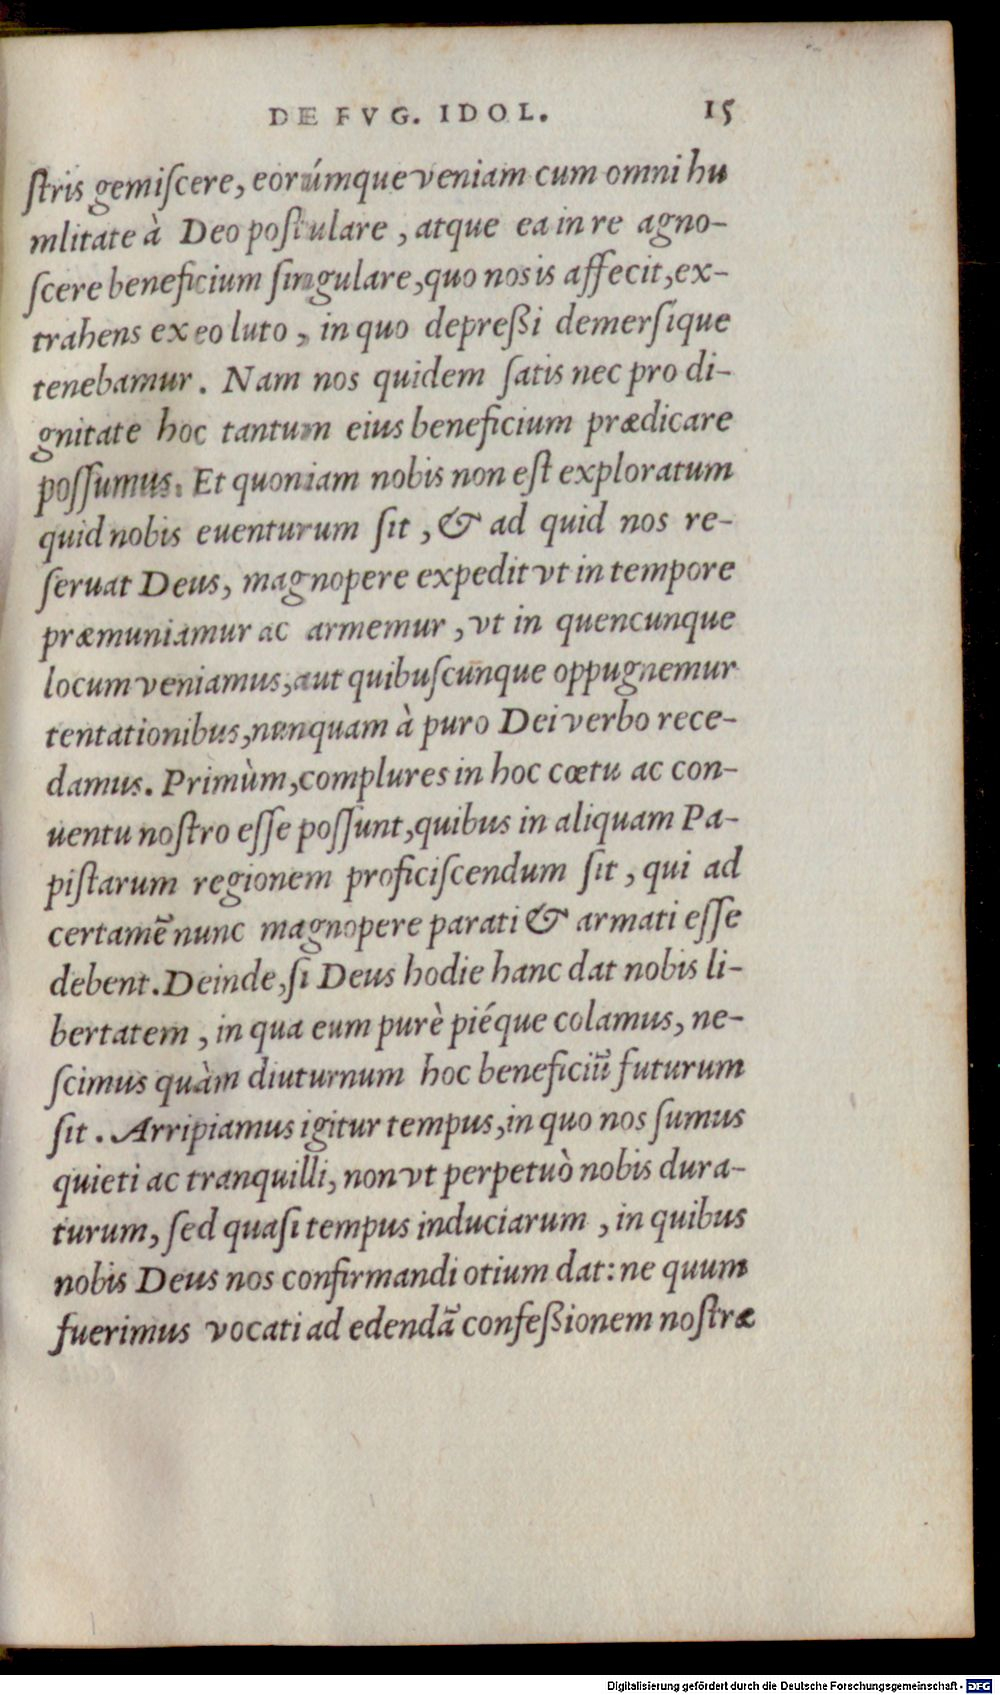 DE FVG. IDOL. 15
ſtris gemiſcere, eorúmque veniam cum omni hu
mlitate à Deo poſtulare, atque ea in re agno-
ſcere beneficium ſingulare, quo nos is affecit, ex-
trahens ex eo luto, in quo depreßi demerſique
tenebamur. Nam nos quidem ſatis nec pro di-
gnitate hoc tantum eius beneficium prædicare
poſſumus. Et quoniam nobis non eſt exploratum
quid nobis euenturum ſit, & ad quid nos re-
ſeruat Deus, magnopere expedit vt in tempore
præmuniamur ac armemur, vt in quencunque
locum veniamus, aut quibuſcunque oppugnemur
tentationibus, nunquam à puro Dei verbo rece-
damus. Primùm, complures in hoc cœtu ac con-
uentu noſtro eſſe poſſunt, quibus in aliquam Pa-
piſtarum regionem proficiſcendum ſit, qui ad
certamē nunc magnopere parati & armati eſſe
debent. Deinde, ſi Deus hodie hanc dat nobis li-
bertatem, in qua eum purè piéque colamus, ne-
ſcimus quàm diuturnum hoc beneficiū futurum
ſit. Arripiamus igitur tempus, in quo nos ſumus
quieti ac tranquilli, non vt perpetuò nobis dura-
turum, ſed quaſi tempus induciarum, in quibus
nobis Deus nos confirmandi otium dat: ne quum
fuerimus vocati ad edendā confeßionem noſtræ
Digitalisierung gefördert durch die Deutsche Forschungsgemeinschaft - DFG